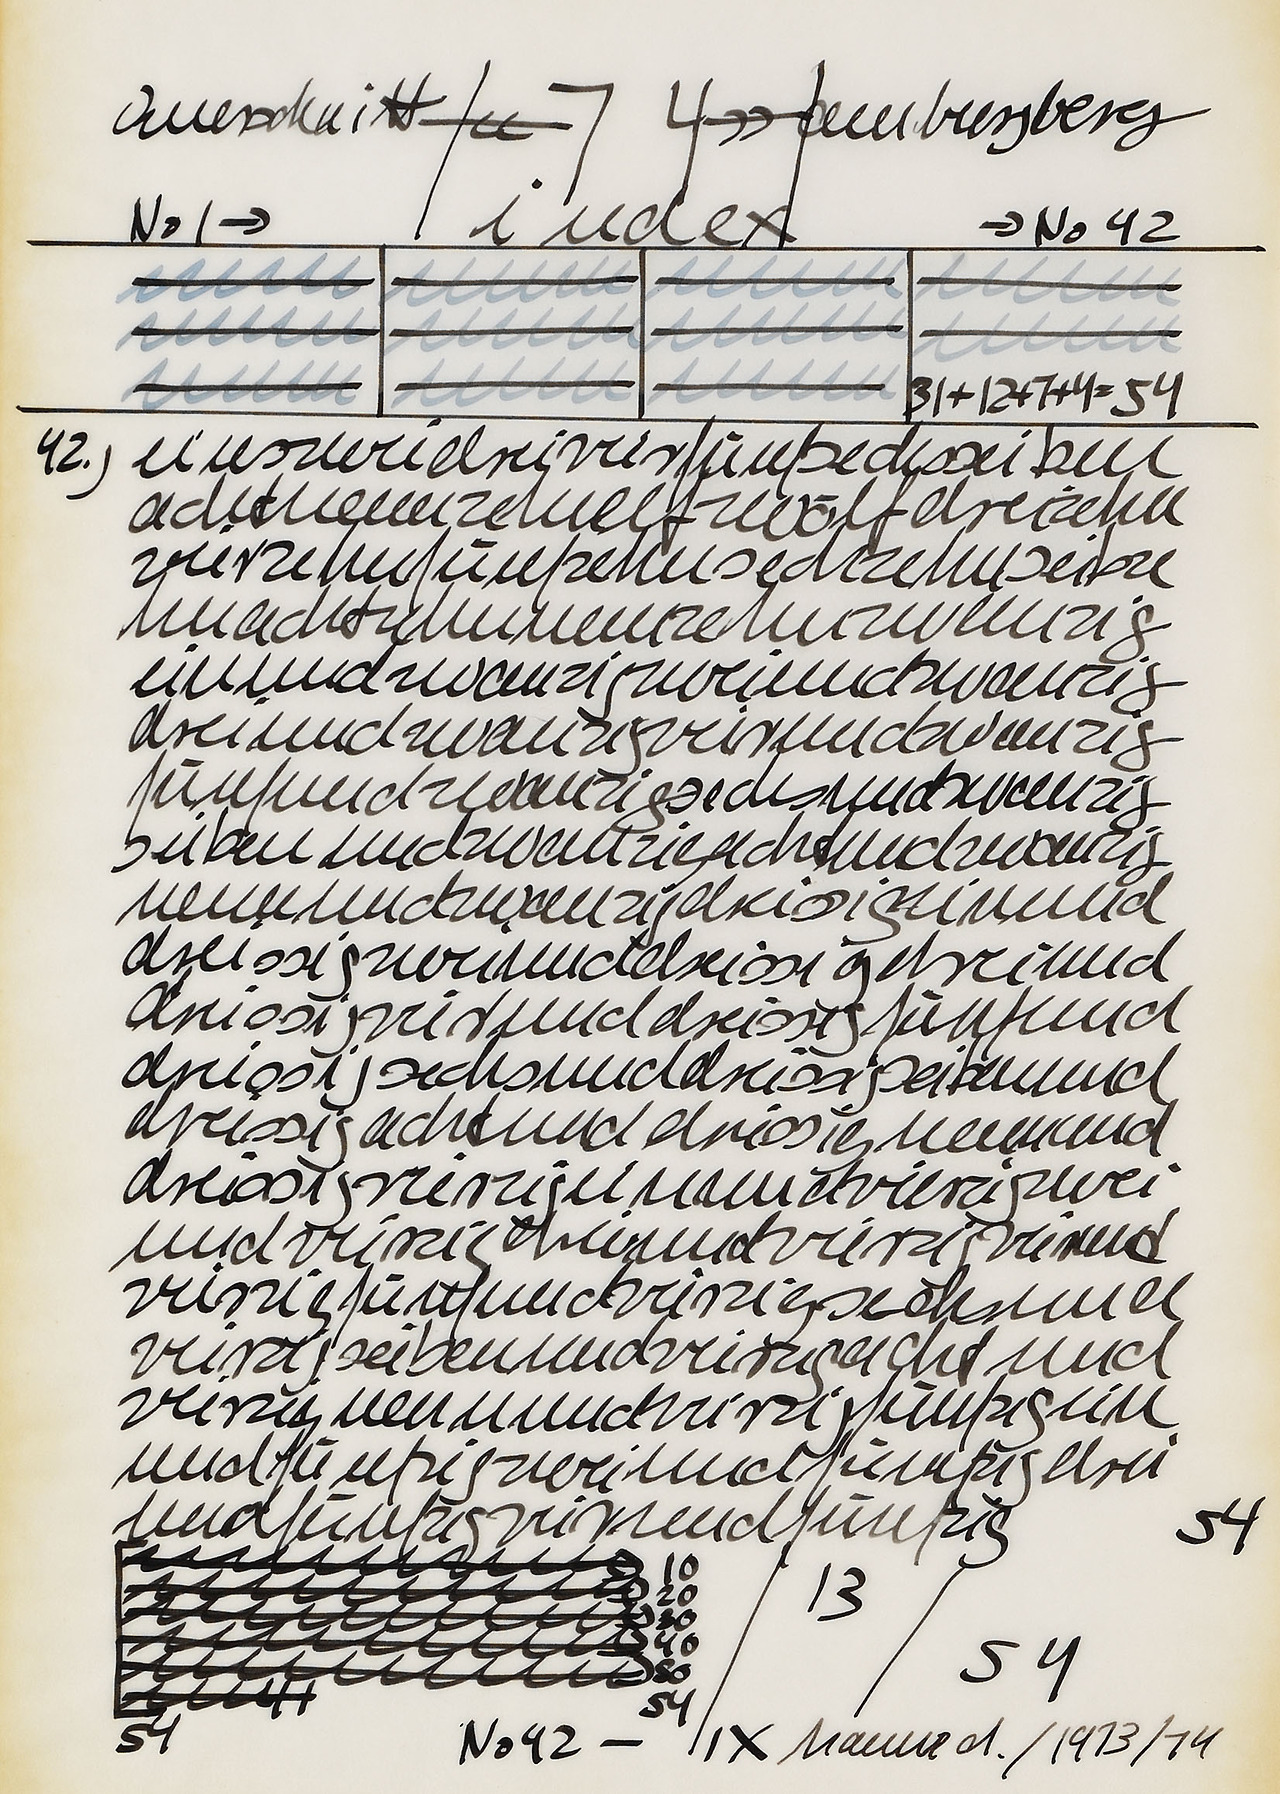 Querschnitt 7 4 → am burgberg
No 1 → index → No 42
31+12+7+4= 54
42.) einszweidreivierfünfsechssieben
achtneunzehnelfzwölfdreizehn
vierzehnfünfzehnsechzehnsiebze
hnachtzehnneunzehnzwanzig
einundzwanzigzweiundzwanzig
dreiundzwanzigvierundzwanzig
fünfundzwanzigsechsundzwanzig
siebenundzwanzigachtundzwanzig
neunundzwanzigdreissigeinund
dreissigzweiunddreissigdreiund
dreissigvierunddreissigfünfund
dreissigsechsunddreissigsiebenund
dreissigachtunddreissigneunund
dreissigvierzigeinundvierzigzwei
undvierzigdreiundvierzigvierund
vierzigfünfundvierzigsechsund
vierzigsiebenundvierzigachtund
vierzigneunundvierzigfünfzigein
undfünfzigzweiundfünfzigdrei
undfünfzigvierundfünfzig 54
10
20
30
40
50
54
54
13
54
No 42 — IX Hanne d. /1973/74